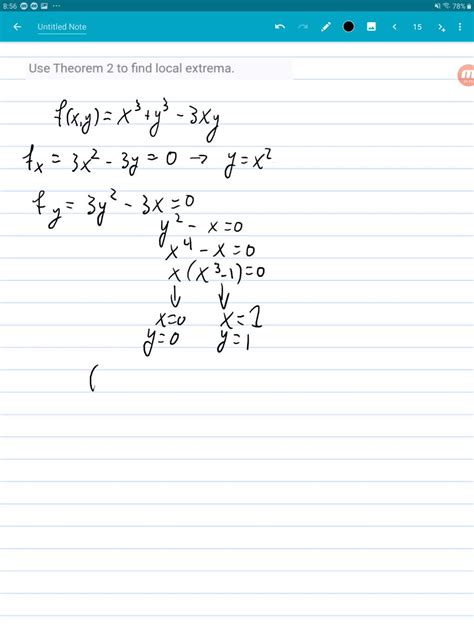 8:56 78%
Untitled Note 15
Use Theorem 2 to find local extrema.
f(x,y) = x³+y³ - 3xy
fx = 3x² - 3y = 0 → y = x²
fy = 3y² - 3x = 0
y² - x = 0
x⁴ - x = 0
x(x³-1) = 0
↓ ↓
x=0 x=1
y=0 y=1
(